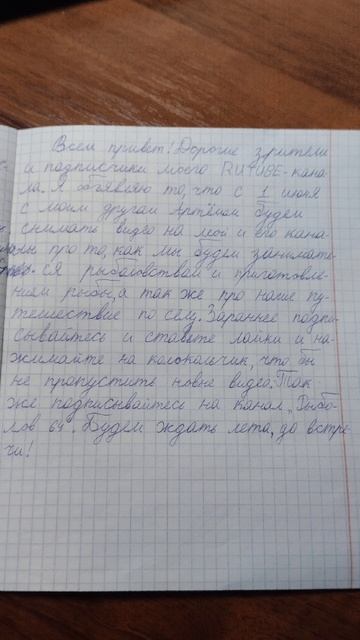 Всем привет! Дорогие зрители
и подписчики моего RUTUBE-кана-
ла. Я объявляю то, что с 1 июня
с моим другом Артёмом будем
снимать видео на мой и его кана-
лы про то, как мы будем занимать-
ся рыболовством и приготовле-
нием рыбы, а так же про наше пу-
тешествие по селу. Зараннее подпи-
сывайтесь и ставьте лайки и на-
жимайте на колокальчик, что бы
не пропустить новые видео. Так
же подписывайтесь на канал „Рыбо-
лов 64". Будем ждать лета, до встре-
чи!